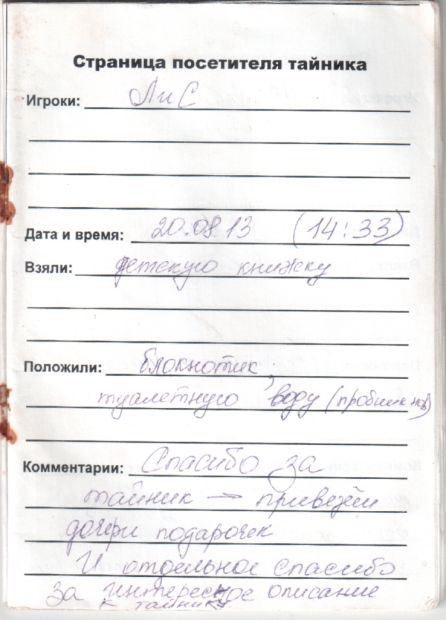 Страница посетителя тайника
Игроки: ЛиС
Дата и время: 20.08.13 (14:33)
Взяли: детскую книжку
Положили: блокнотик,
туалетную воду (пробник нов)
Комментарии: Спасибо за
тайник → привезём
дочери подарочек
И отдельное спасибо
за интересное описание
к тайнику